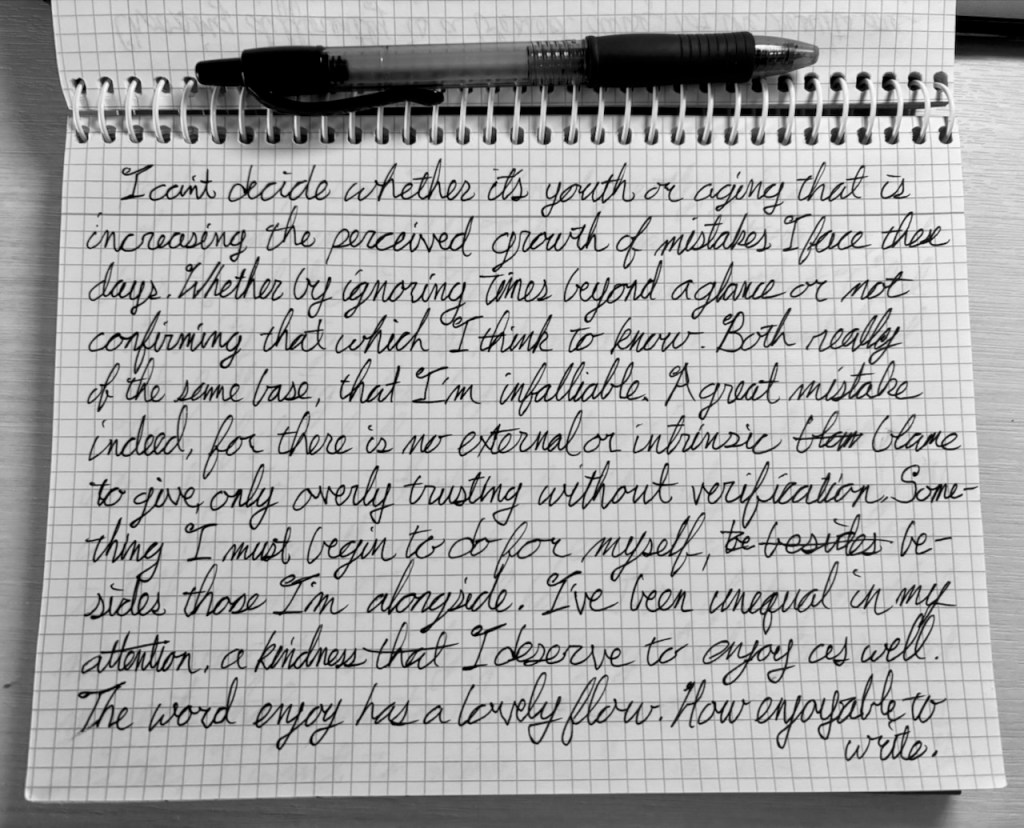 I can't decide whether it's youth or aging that is
increasing the perceived growth of mistakes I face these
days. Whether by ignoring times beyond a glance or not
confirming that which I think to know. Both really
of the same base, that I'm infalliable. A great mistake
indeed, for there is no external or intrinsic blam blame
to give, only overly trusting without verification. Some-
thing I must begin to do for myself, be besides be-
sides those I'm alongside. I've been unequal in my
attention, a kindness that I deserve to enjoy as well.
The word enjoy has a lovely flow. How enjoyable to
write.